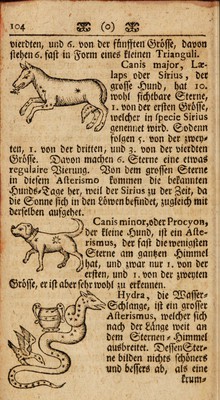 104 (o)
vierdten, und 6. von der fünfften Grösse, davon
stehen 6. fast in Form eines kleinen Trianguli.
Canis major, Læ-
laps oder Sirius, der
grosse Hund, hat 10.
wohl sichtbare Sterne,
1. von der ersten Grösse,
welcher in specie Sirius
genennet wird. Sodenn
folgen 5. von der zwey-
ten, 1. von der dritten, und 3. von der vierdten
Grösse. Davon machen 6. Sterne eine etwas
regulaire Vierung. Von dem grossen Sterne
in diesem Asterismo kommen die bekannten
Hunds-Tage her, weil der Sirius zu der Zeit, da
die Sonne sich in den Löwen befindet, zugleich mit
derselben aufgehet.
Canis minor, oder Procyon,
der kleine Hund, ist ein Aste-
rismus, der fast die wenigsten
Sterne am gantzen Himmel
hat, und zwar nur 1. von der
ersten, und 1. von der zweyten
Grösse, er ist aber sehr wohl zu erkennen.
Hydra, die Wasser-
Schlange, ist ein grosser
Asterismus, welcher sich
nach der Länge weit an
dem Sternen-Himmel
ausbreitet. Dessen Ster-
ne bilden nichts schöners
und bessers ab, als eine
krum-